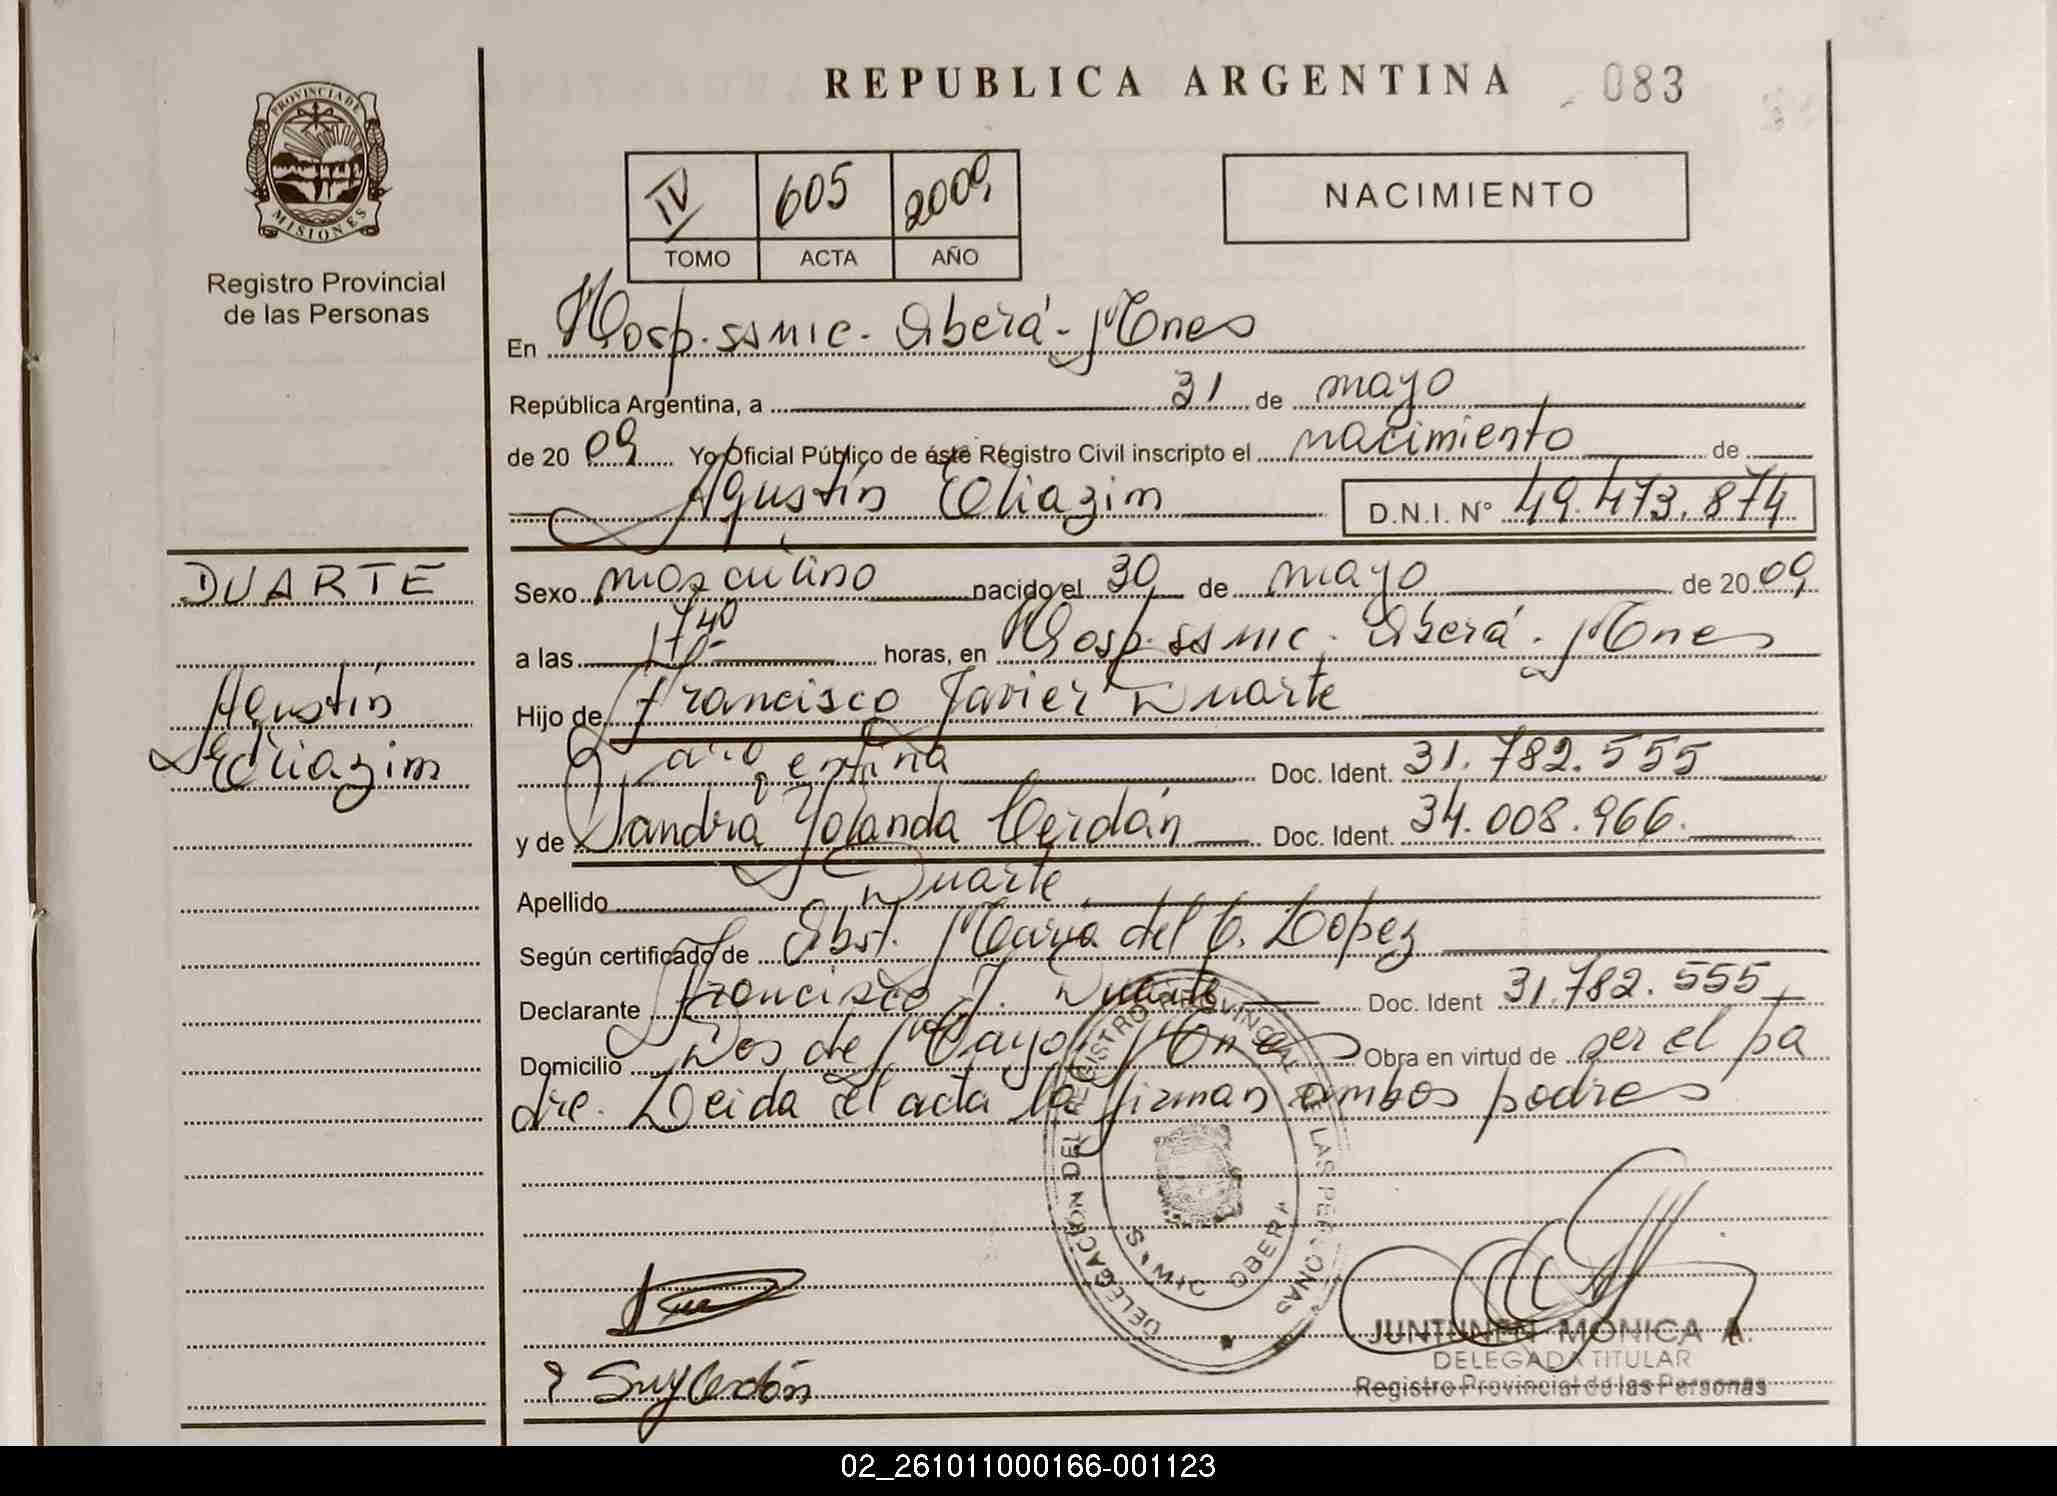 REPUBLICA ARGENTINA 083
PROVINCIA DE
MISIONES
Registro Provincial
de las Personas
IV 605 2009
TOMO ACTA AÑO
NACIMIENTO
En Hosp. SAMIC. Oberá - Mnes
República Argentina, a 31 de mayo
de 2009 Yo Oficial Público de éste Registro Civil inscripto el nacimiento de
Agustín Eliazim D.N.I. N° 49.473.874
DUARTE
Agustín
Eliazim
Sexo masculino nacido el 30 de mayo de 2009
a las 17,40 horas, en Hosp. SAMIC. Oberá - Mnes
Hijo de Francisco Javier Duarte
argentina Doc. Ident. 31.782.555
y de Sandra Yolanda Cerdán Doc. Ident. 34.008.966.
Apellido Duarte
Según certificado de Obst. María del C. Lopez
Declarante Francisco J. Duarte Doc. Ident 31.782.555
Domicilio Dos de Mayo, Mnes Obra en virtud de ser el pa
dre. Leida el acta la firman ambos padres
DELEGACION DEL REGISTRO PROVINCIAL DE LAS PERSONAS
SAMIC OBERA
JUNTUNEN MONICA A.
DELEGADA TITULAR
Registro Provincial de las Personas
02_261011000166-001123